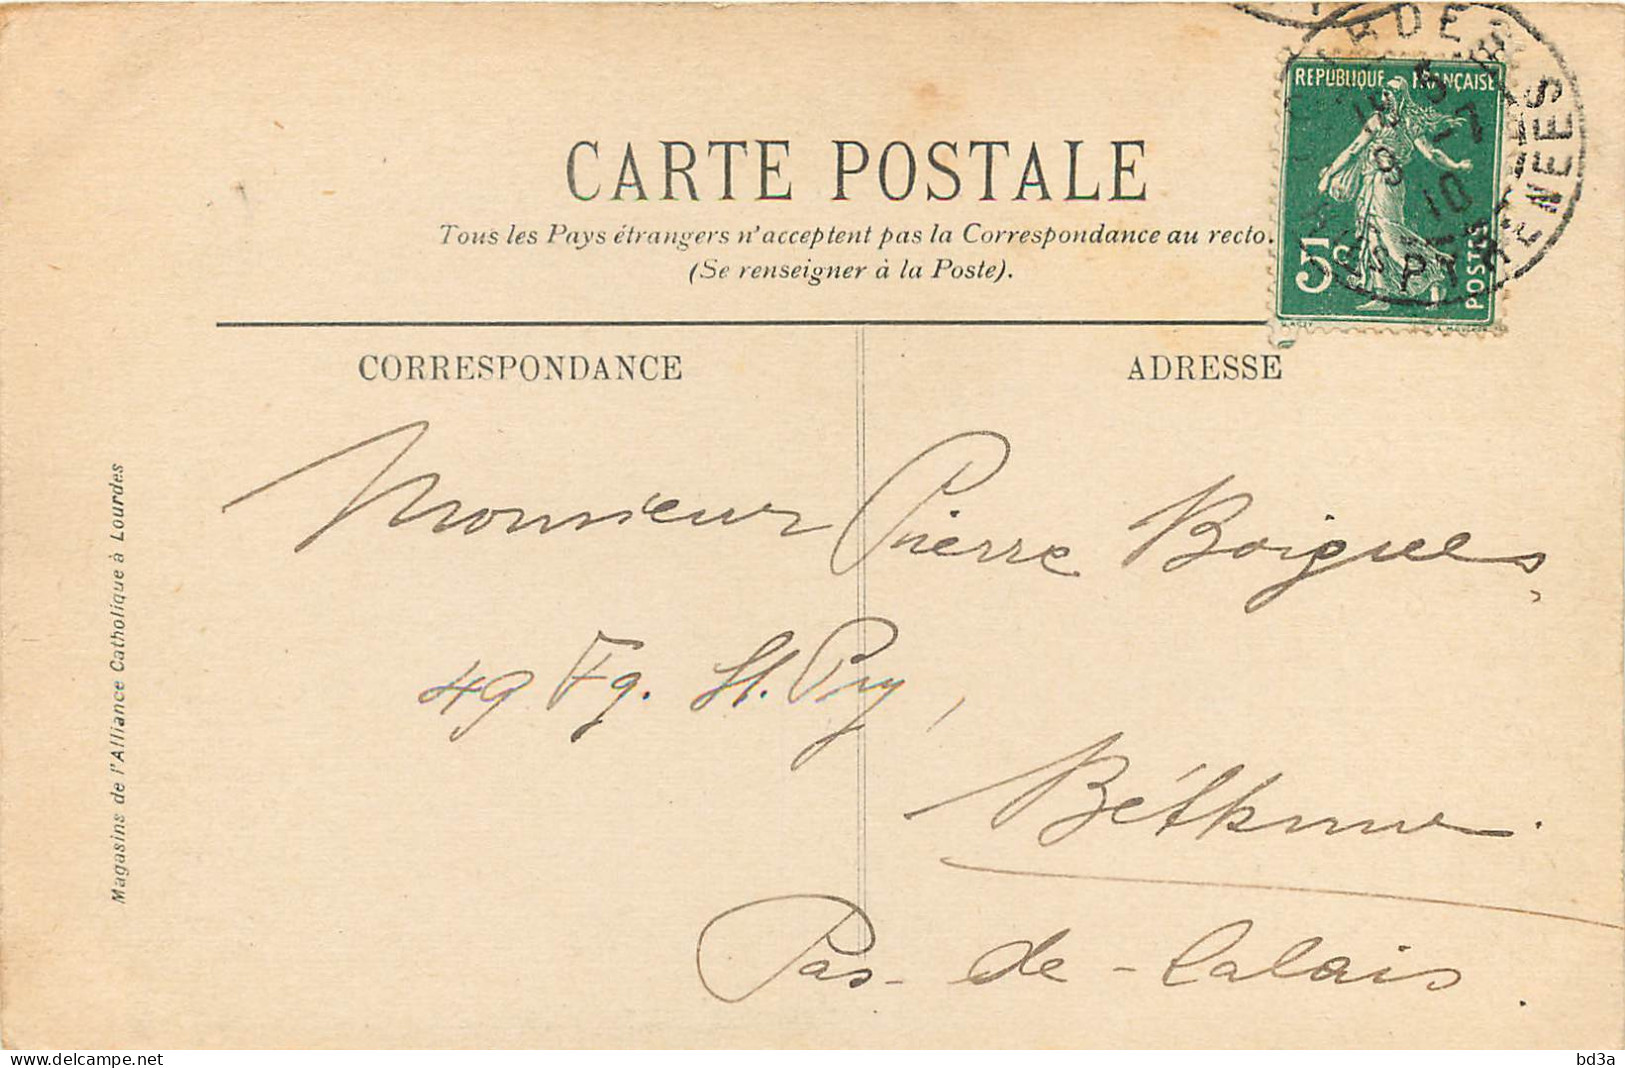 REPUBLIQUE FRANÇAISE
5c
POSTES
CARTE POSTALE
Tous les Pays étrangers n'acceptent pas la Correspondance au recto.
(Se renseigner à la Poste).
CORRESPONDANCE
ADRESSE
Monsieur Pierre Boigues,
49 Fg. St. Pry,
Béthune.
Pas-de-Calais.
Magasins de l'Alliance Catholique à Lourdes
www.delcampe.net
bd3a